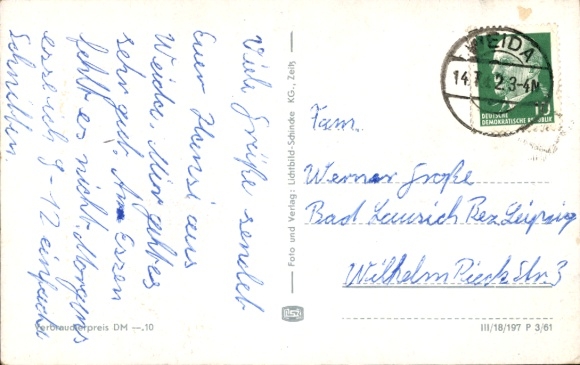 Viele Grüße sendet
Euer Hansi aus
Weida. Mir geht es
sehr gut. Am Essen
fehlt es nicht. Morgens
esse ich 9-12 einfache
Schnitten.
Verbraucherpreis DM —.10
Foto und Verlag: Lichtbild-Schincke KG., Zeitz
WEIDA
14.
2.3-4N
10
DEUTSCHE
DEMOKRATISCHE REPUBLIK
Fam.
Werner Große
Bad Lausich Bez. Leipzig
Wilhelm Pieck Str. 3
III/18/197 P 3/61